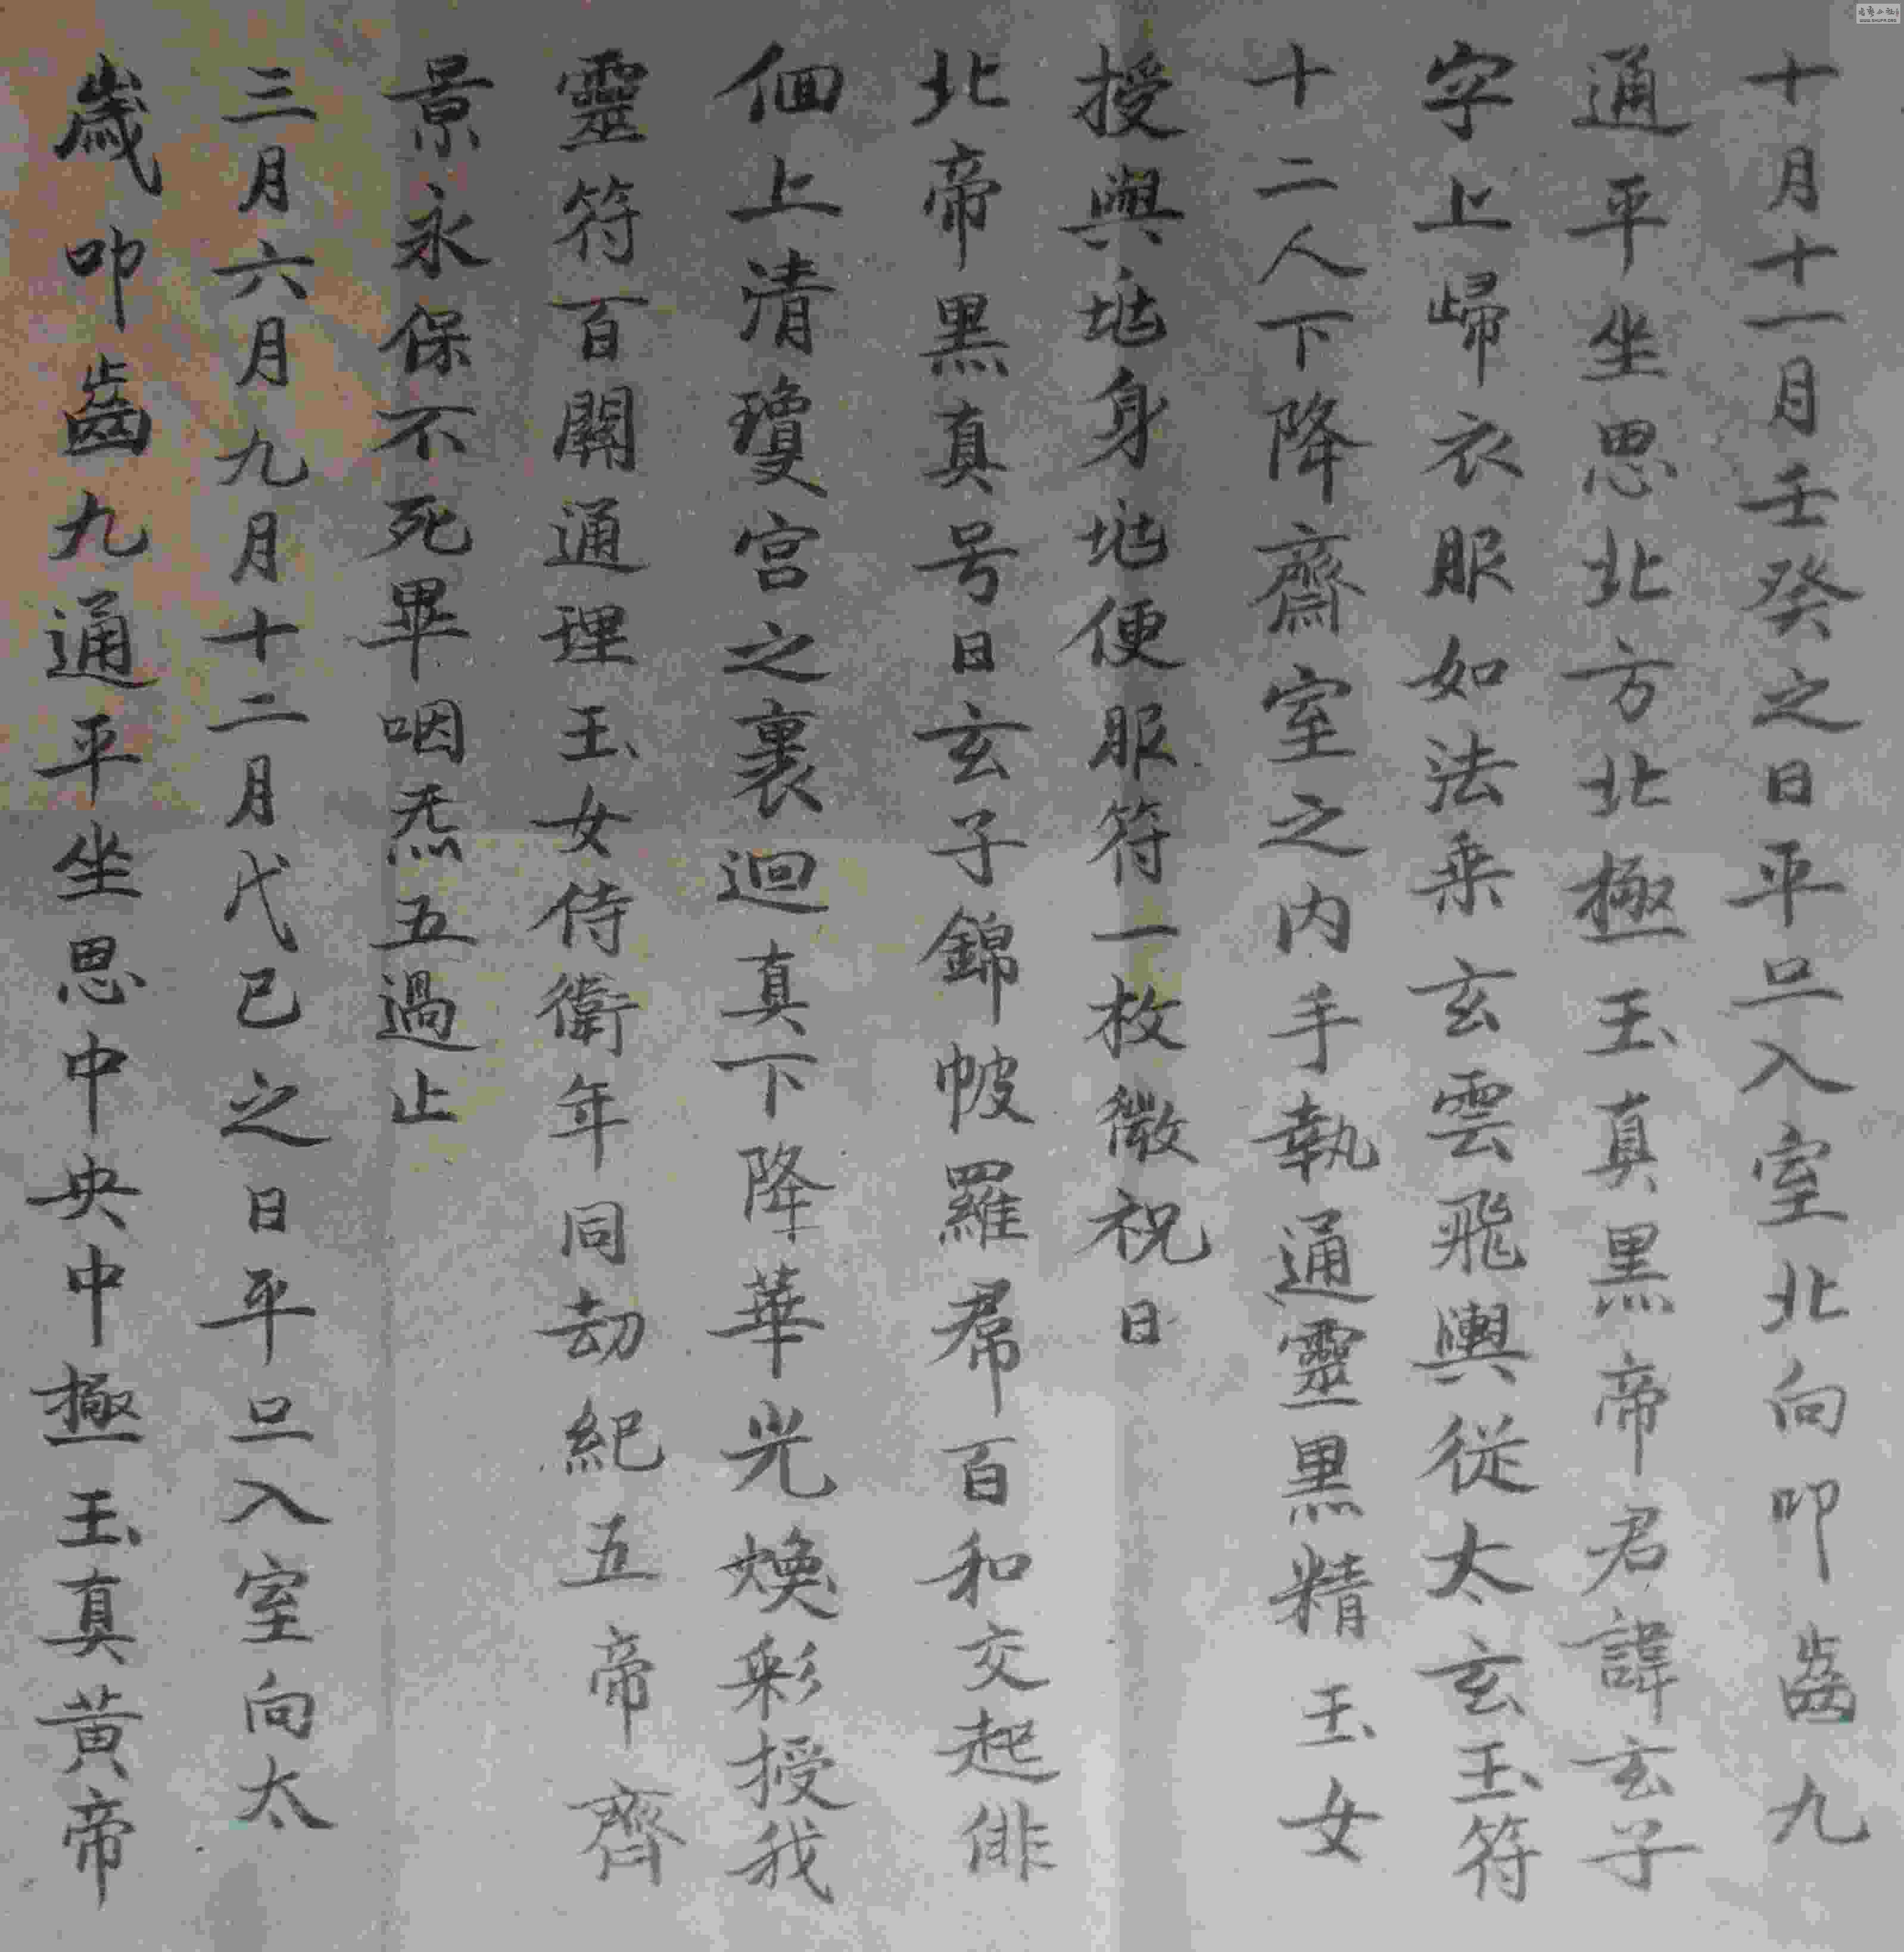 十月十一月壬癸之日平旦入室北向叩齒九
通平坐思北方北極玉真黑帝君諱玄子
字上歸衣服如法乘玄雲飛輿從太玄玉符
十二人下降齋室之內手執通靈黑精玉女
授與兆身兆便服符一枚微祝曰
北帝黑真号曰玄子錦帔羅帬百和交起俳
佪上清瓊宮之裏迴真下降華光煥彩授我
靈符百關通理玉女侍衛年同劫紀五帝齊
景永保不死畢咽炁五過止
三月六月九月十二月戊己之日平旦入室向太
歲叩齒九通平坐思中央中極玉真黃帝